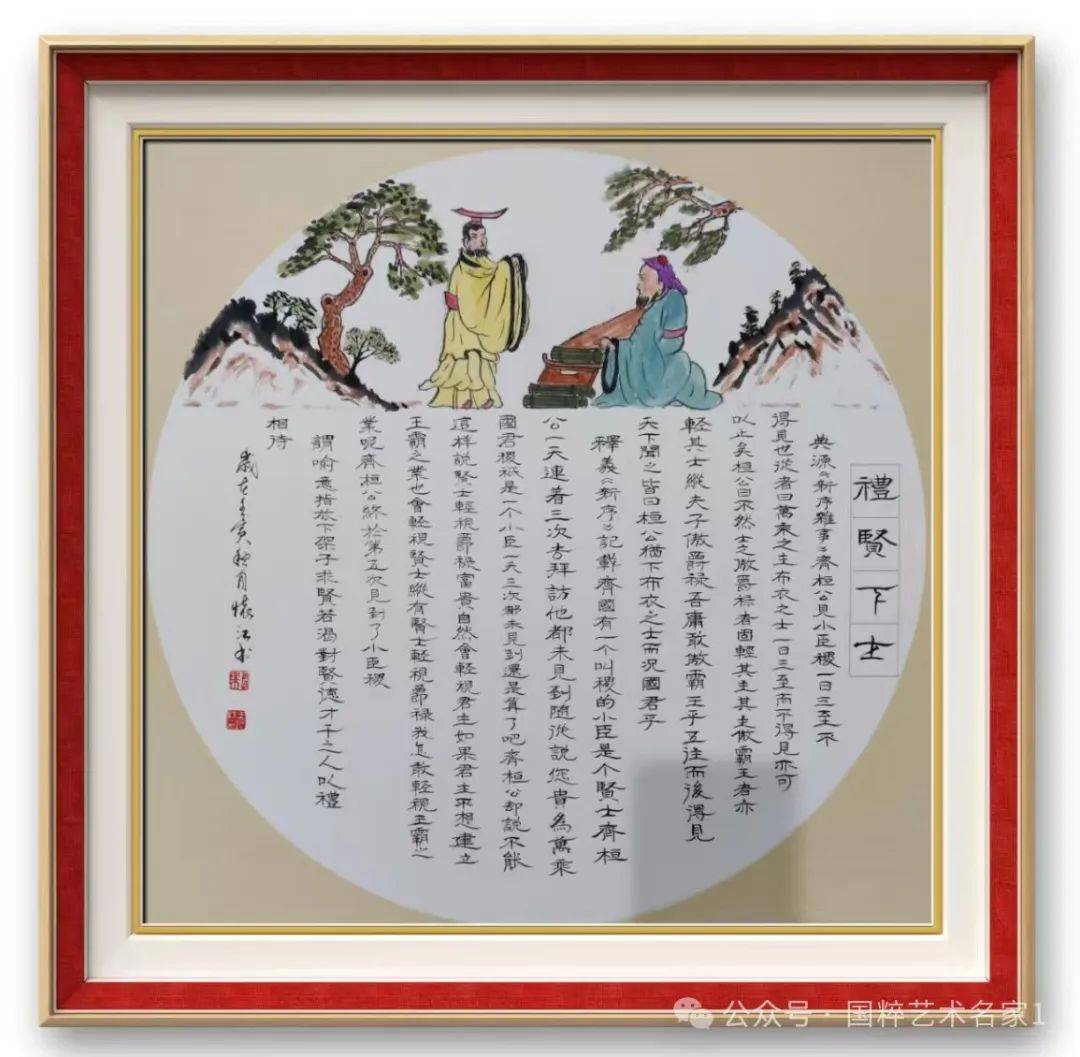 禮賢下士
典源《新序雜事》齊桓公見小臣稷一日三至不
得見也從者曰萬乘之主布衣之士一日三至而不得見亦可
以止矣桓公曰不然士之傲爵祿者固輕其主其主傲霸王者亦
輕其士縱夫子傲爵祿吾庸敢傲霸王乎五往而後得見
天下聞之皆曰桓公猶下布衣之士而況國君乎
釋義《新序》記載齊國有一个叫稷的小臣是个賢士齊桓
公一天連着三次去拜訪他都未見到隨從說您貴為萬乘
國君稷祇是一个小臣一天三次都未見到還是算了吧齊桓公却說不能
這样說賢士輕視爵祿富貴自然會輕視君主如果君主不想建立
王霸之業也會輕視賢士縱有賢士輕視爵祿我怎敢輕視王霸之
業呢齊桓公終於第五次見到了小臣稷
謂喻意指放下架子求賢若渴對賢德才干之人以禮
相待
歲在壬寅秋月懷江书
公众号·国粹艺术名家1